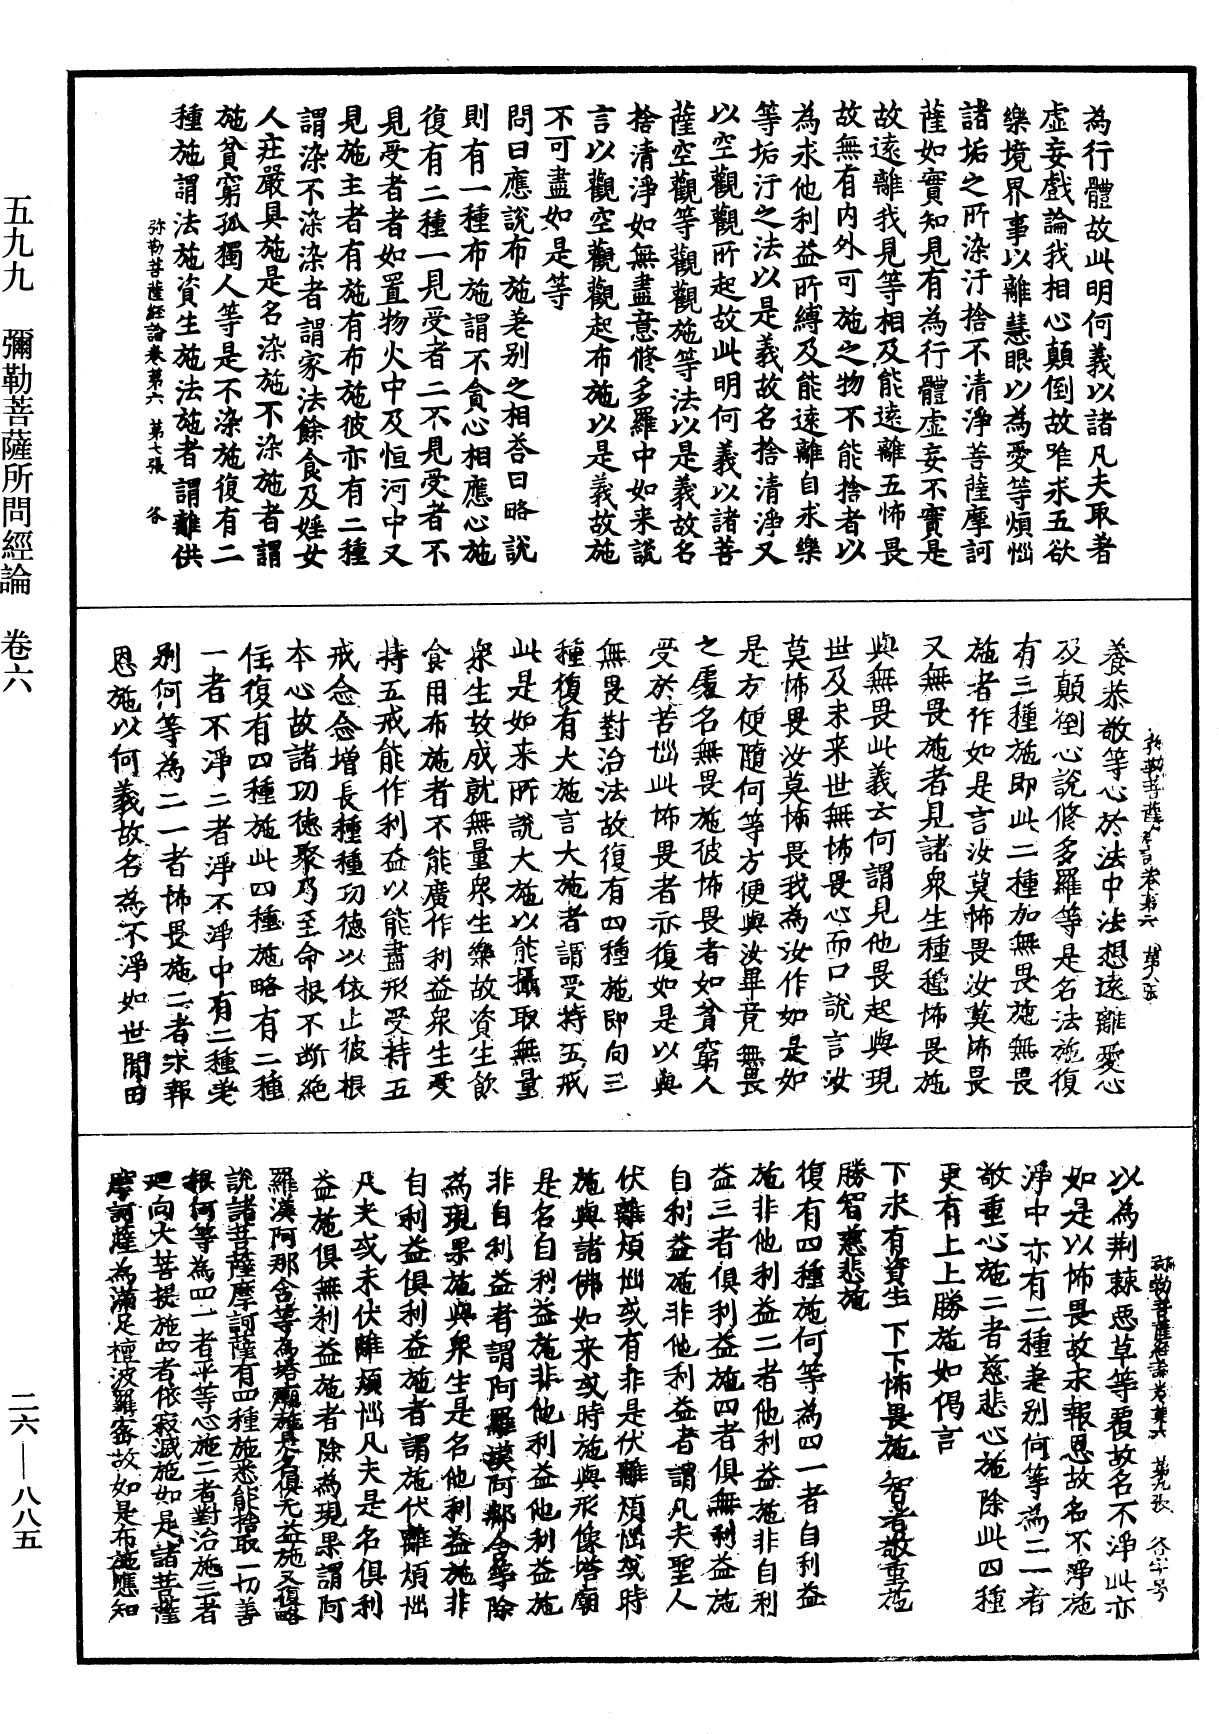 為行體故此明何義以諸凡夫取著
虛妄戲論我相心顛倒故唯求五欲
樂境界事以離慧眼以為愛等煩惱
諸垢之所染汙捨不清淨菩薩摩訶
薩如實知見有為行體虛妄不實是
故遠離我見等相及能遠離五怖畏
故無有內外可施之物不能捨者以
為求他利益所縛及能遠離自求樂
等垢汙之法以是義故名捨清淨又
以空觀觀所起故此明何義以諸菩
薩空觀等觀觀施等法以是義故名
捨清淨如無盡意修多羅中如来說
言以觀空觀觀起布施以是義故施
不可盡如是等
問曰應說布施差別之相答曰略說
則有一種布施謂不貪心相應心施
復有二種一見受者二不見受者不
見受者者如置物火中及恒河中又
見施主者有施有布施彼亦有二種
謂染不染染者謂家法餘食及婬女
人莊嚴具施是名染施不染施者謂
施貧窮孤獨人等是不染施復有二
種施謂法施資生施法施者謂離供
弥勒菩薩經論卷第六　第七張　谷
養恭敬等心於法中法想遠離愛心
及顛倒心說修多羅等是名法施復
有三種施即此二種加無畏施無畏
施者作如是言汝莫怖畏汝莫怖畏
又無畏施者見諸衆生種種怖畏施
與無畏此義云何謂見他畏起與現
世及未来世無怖畏心而口說言汝
莫怖畏汝莫怖畏我為汝作如是如
是方便隨何等方便與汝畢竟無畏
之處名無畏施彼怖畏者如貧窮人
受於苦惱此怖畏者亦復如是以與
無畏對治法故復有四種施即向三
種復有大施言大施者謂受持五戒
此是如来所說大施以能攝取無量
衆生故成就無量衆生樂故資生飲
食用布施者不能廣作利益衆生受
持五戒能作利益以能盡形受持五
戒念念增長種種功德以依止彼根
本心故諸功德聚乃至命根不斷絕
住復有四種施此四種施略有二種
一者不淨二者淨不淨中有二種差
別何等為二一者怖畏施二者求報
恩施以何義故名為不淨如世間田
弥勒菩薩經論卷第六　第八張
以為荆棘惡草等覆故名不淨此亦
如是以怖畏故求報恩故名不淨施
淨中亦有二種差別何等為二一者
敬重心施二者慈悲心施除此四種
更有上上勝施如偈言
下求有資生　下下怖畏施　智者敬重施
勝智慈悲施
復有四種施何等為四一者自利益
施非他利益二者他利益施非自利
益三者俱利益施四者俱無利益施
自利益施非他利益者謂凡夫聖人
伏離煩惱或有非是伏離煩惱或時
施與諸佛如来或時施與形像塔廟
是名自利益施非他利益他利益施
非自利益者謂阿羅漢阿那含等除
為現果施與衆生是名他利益施非
自利益俱利益施者謂施伏離煩惱
凡夫或未伏離煩惱凡夫是名俱利
益施俱無利益施者除為現果謂阿
羅漢阿那含等為塔廟施是名俱无益施又復略
說諸菩薩摩訶薩有四種施悉能捨取一切善
根何等為四一者平等心施二者對治施三者
迴向大菩提施四者依寂滅施如是諸菩薩
摩訶薩為滿足檀波羅蜜故如是布施應知
弥勒菩薩經論卷第六　第九張　谷字号
五九九　彌勒菩薩所問經論　卷六
二六——八八五